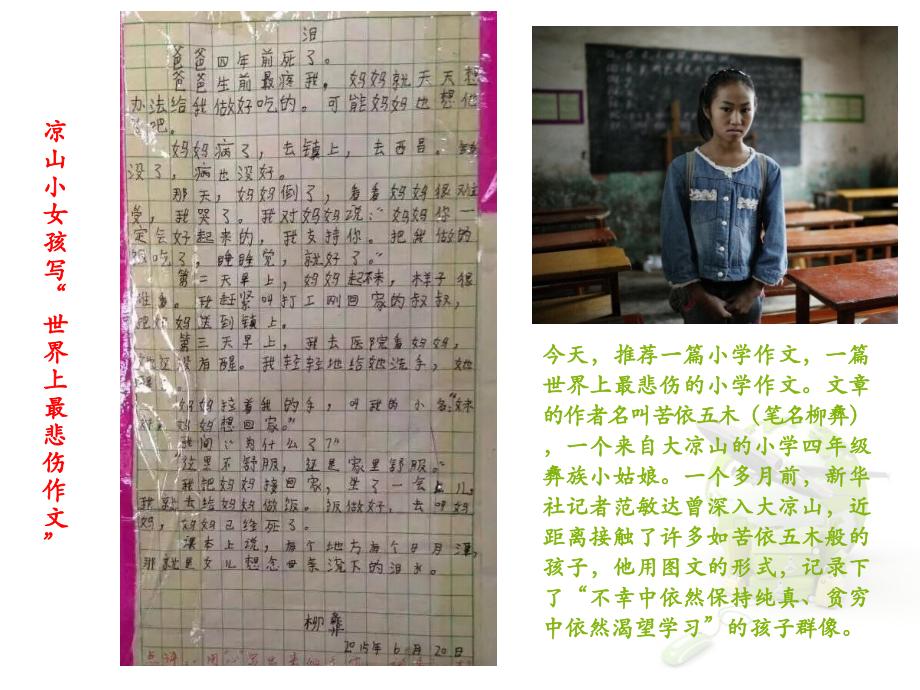 凉山小女孩写“世界上最悲伤作文”
泪
爸爸四年前死了。
爸爸生前最疼我，妈妈就天天想
办法给我做好吃的。可能妈妈也想他
吧。
妈妈病了，去镇上，去西昌。钱
没了，病也没好。
那天，妈妈倒了，看看妈妈很难
受，我哭了。我对妈妈说：“妈妈你一
定会好起来的，我支持你。把我做的
饭吃了，睡睡觉，就好了。”
第二天早上，妈妈起不来，样子很
难看。我赶紧叫打工刚回家的叔叔，
把妈妈送到镇上。
第三天早上，我去医院看妈妈，
她还没有醒。我轻轻地给她洗手，她
妈妈拉着我的手，叫我的小名：“妹
妹，妈妈想回家。”
我问：“为什么了？”
“这里不舒服，还是家里舒服。”
我把妈妈接回家，坐了一会儿，
我就去给妈妈做饭。饭做好，去叫妈
妈，妈妈已经死了。
课本上说，有个地方有个日月潭，
那就是女儿想念母亲流下的泪水。
柳彝
2015年6月20日
点评：
今天，推荐一篇小学作文，一篇
世界上最悲伤的小学作文。文章
的作者名叫苦依五木（笔名柳彝）
，一个来自大凉山的小学四年级
彝族小姑娘。一个多月前，新华
社记者范敏达曾深入大凉山，近
距离接触了许多如苦依五木般的
孩子，他用图文的形式，记录下
了“不幸中依然保持纯真、贫穷
中依然渴望学习”的孩子群像。